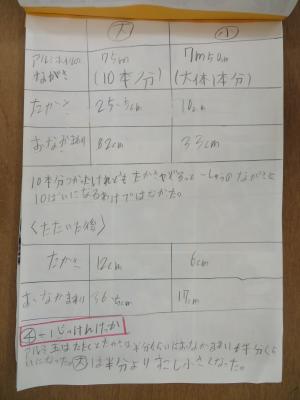 大 小
アルミホイルの ながさ 75m (10本/分) 7m50cm (大体1本分)
たかさ 25.5cm 10cm
おなかまわり 82cm 33cm
10本分つかたけれども たかさや
10ばいになるわけではなかた。
〈たたいた後〉
たかさ 12cm 6cm
おなかまわり 36.5cm 17cm
④-1 心のけんけっか
アルミ玉はたたくとたかさは半分くらいおなかまわりも半分くら
いになった。大は半分よりすこし小さくなった。